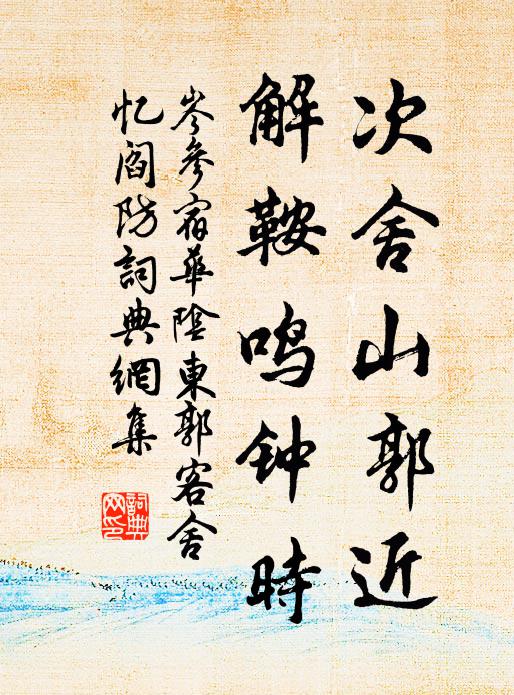 次舍山郭近
解鞍鸣钟時
岑參宿華陰東郭客舍
忆閻防詞典網集
詞典
网印